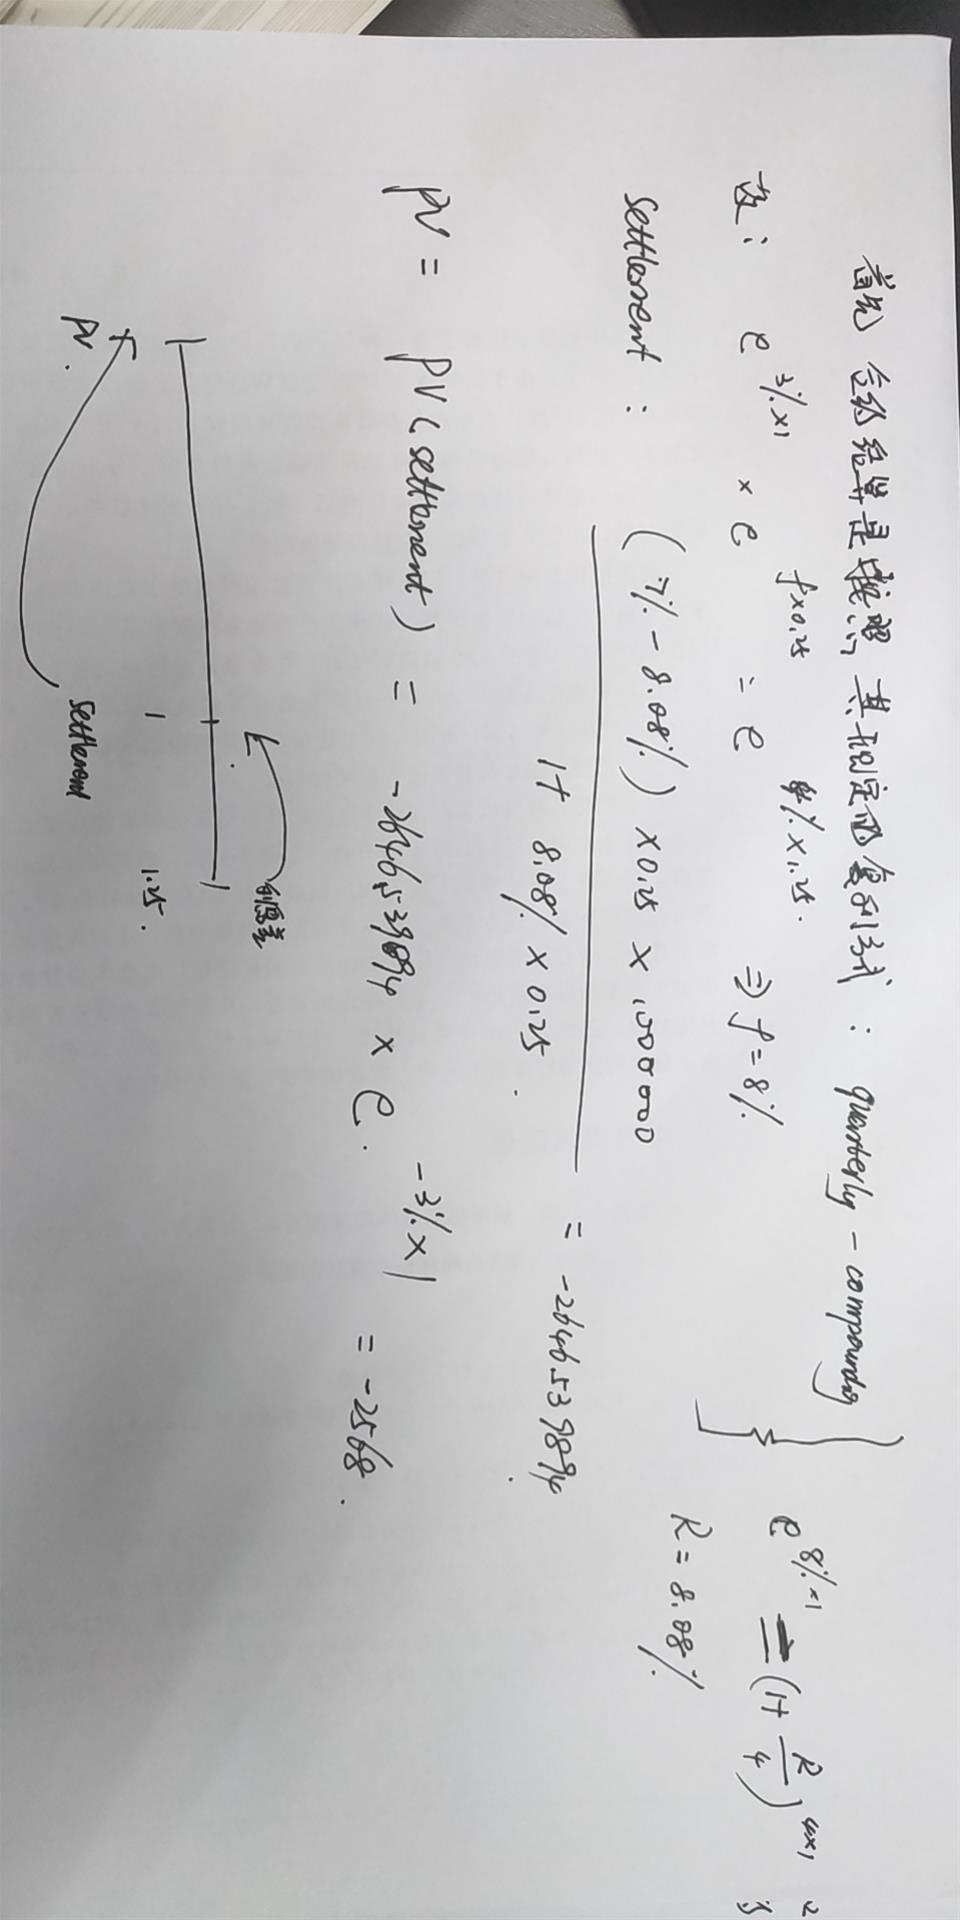 首先 合约结算是按照其规定的复利方式 : quarterly - compounding
故 : e^{3%×1} × e^{f×0.25} = e^{4%×1.25}. ⇒ f = 8%
e^{8%×1} = (1+ R/4)^{4×1}
R = 8.08%
settlement : (7% - 8.08%) × 0.25 × 1,000,000
1+ 8.08% × 0.25.
= -2646.539894.
PV = PV (settlement) = -2646.539894 × e^{-3%×1} = -2568.
利息差
1
1.25.
PV.
settlement